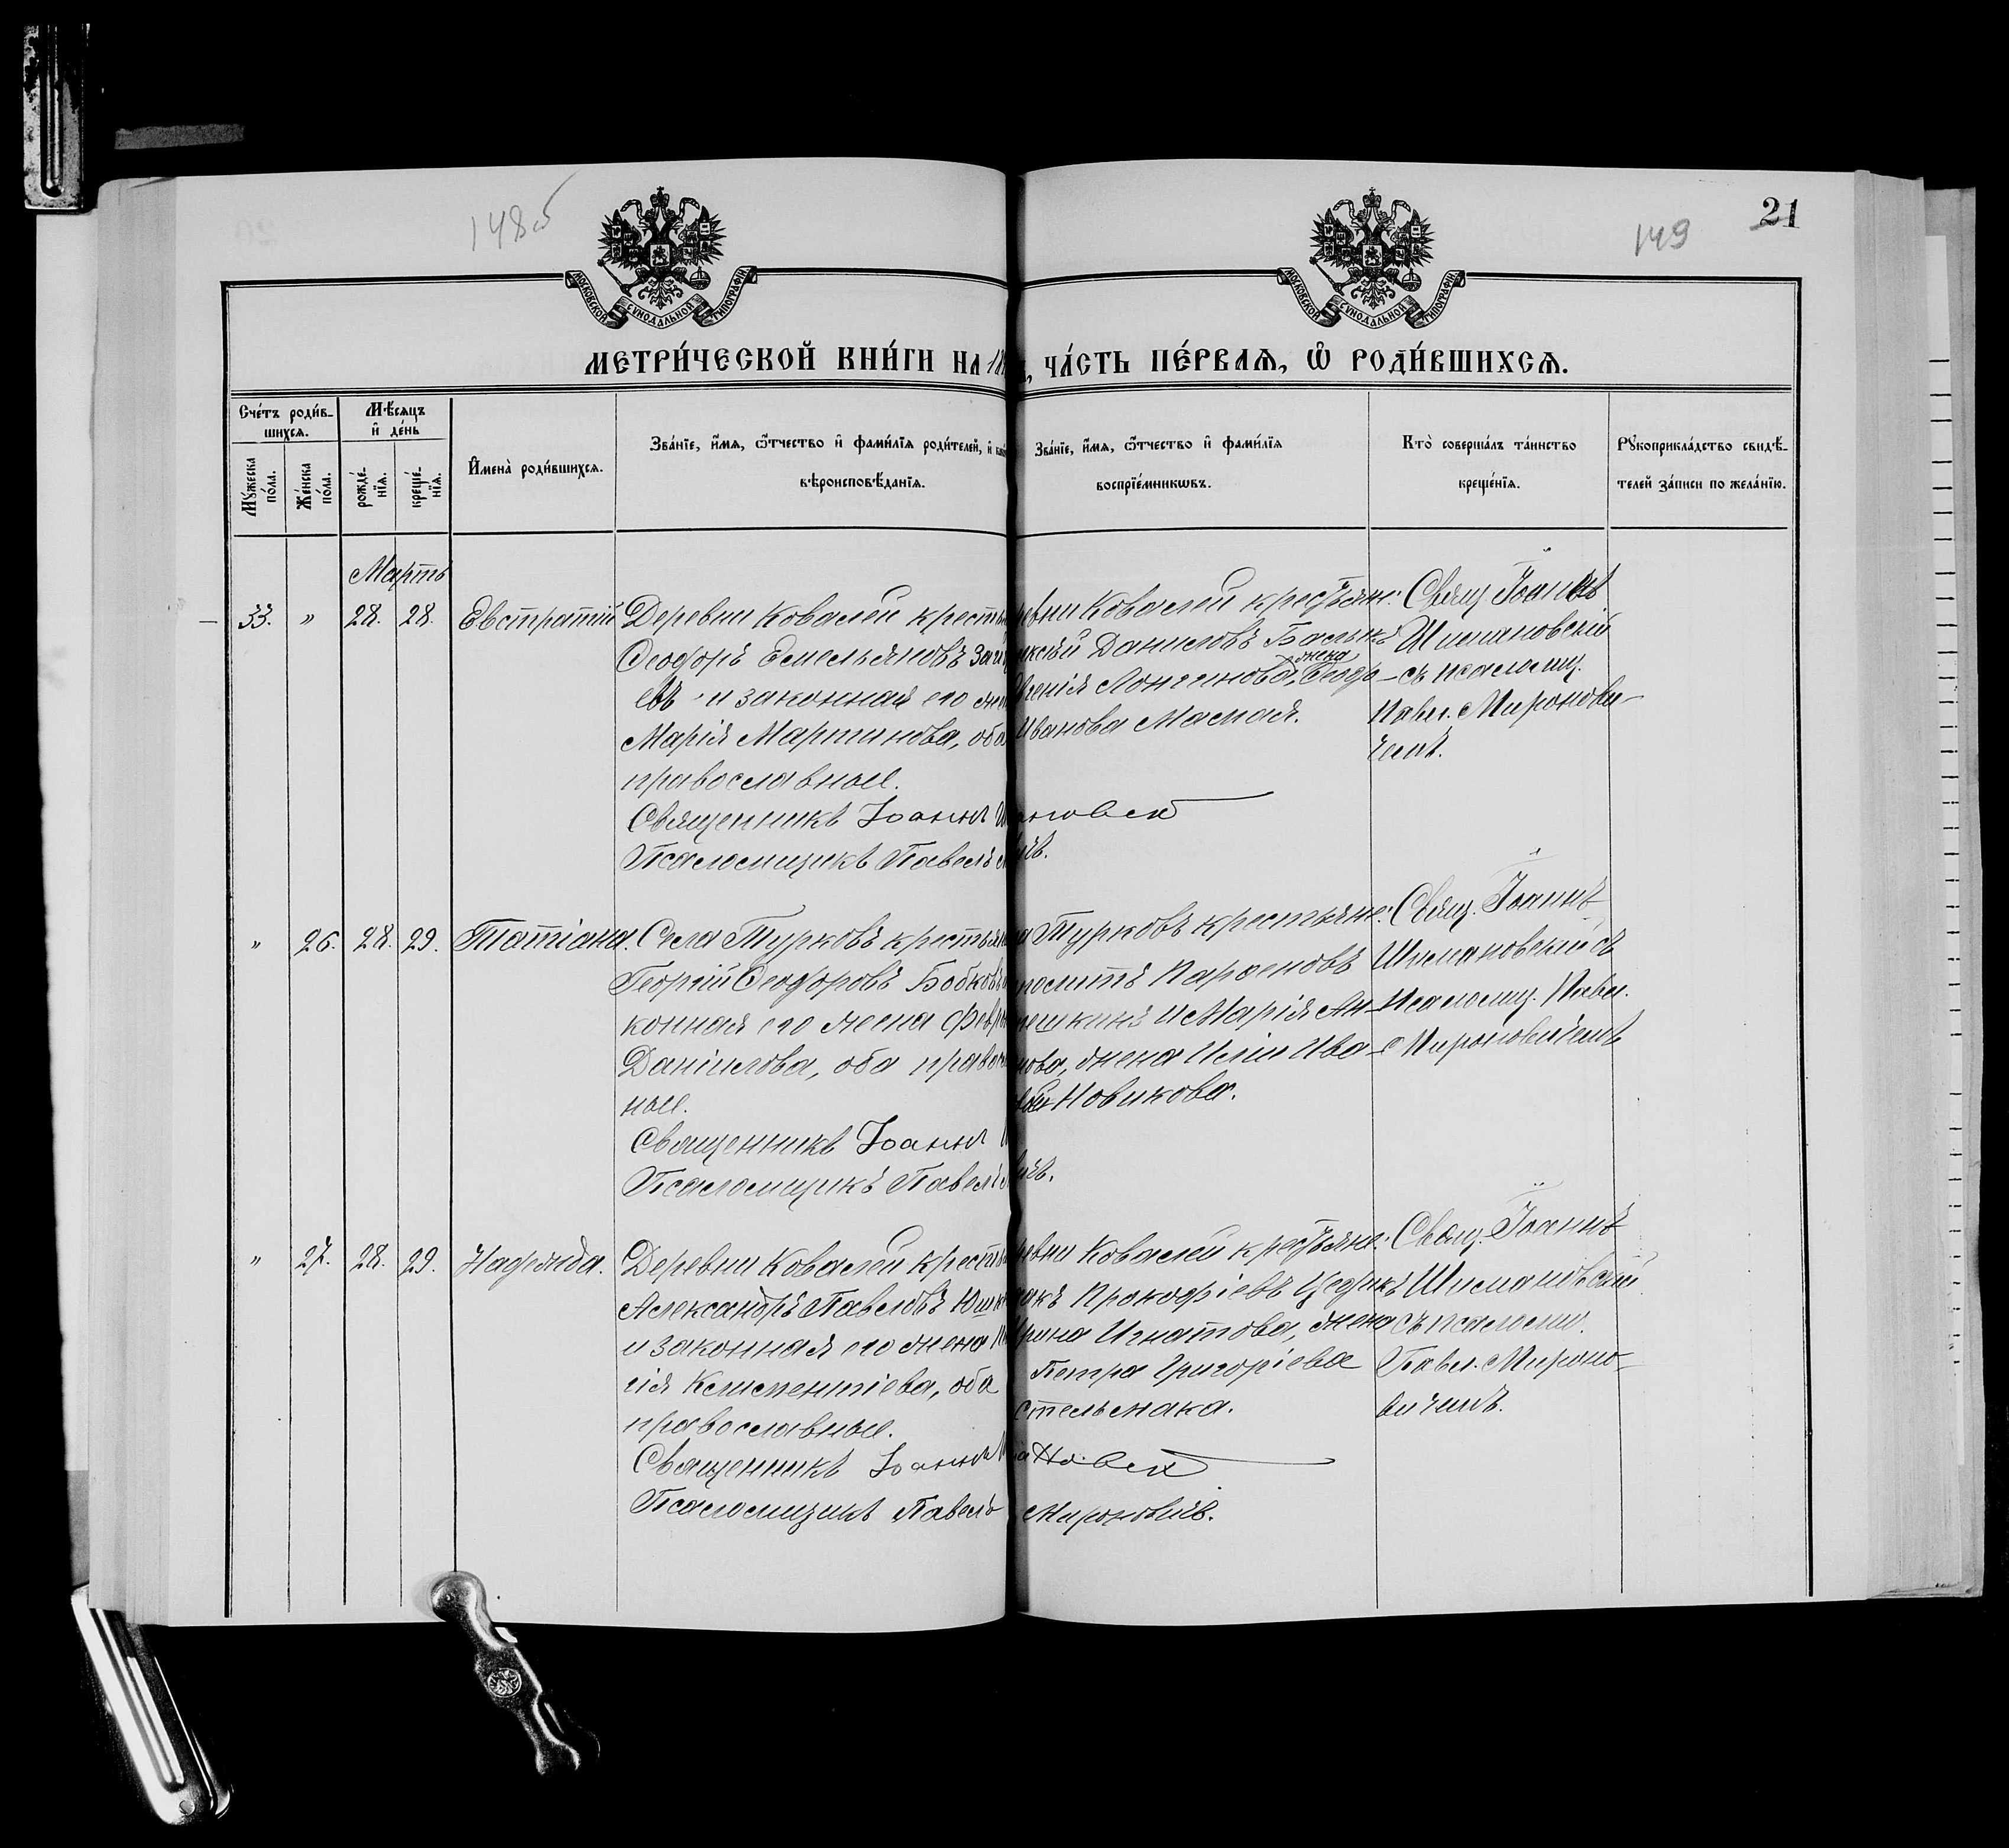 148об
149
21
МОСКОВСКОЙ СѴНОДАЛЬНОЙ ТИПОГРАФІИ
МОСКОВСКОЙ СѴНОДАЛЬНОЙ ТИПОГРАФІИ
МЕТРИ́ЧЕСКОЙ КНИ́ГИ НА 18
ЧА́СТЬ ПЕ́РВАЯ, Ѡ РОДИ́ВШИХСЯ.
Сче́тъ роди́в-
шихся.
Мꙋ́жеска по́ла.
Же́нска по́ла.
Мѣ́сяцъ
и де́нь
рожде́нїя.
креще́нїя.
Имена̀ роди́вшихся.
Зва́нїе, и́мя, ѻ҆́тчество и фами́лїя роди́телей, и
вѣроисповѣ́данїя.
Зва́нїе, и́мя, ѻ҆́тчество и фами́лїя
воспрїе́мникѡвъ.
Кто̀ соверша́лъ та́инство
креще́нїя.
Рꙋкоприкла́дство свидѣ́-
телей за́писи по жела́нїю.
Мартъ
33. " 28. 28. Евстратій
Деревни Ковалей кресть
Ѳеодоръ Емельяновъ
евъ и законная его
Марія Мартинова, оба
православные.
Священникъ Іоаннъ
Псаломщикъ Павелъ
Ковалей крестьяне:
Даниловъ
Лонгинова, жена
Иванова Мамая.
Свящ. Іоаннъ
Шимановскій
съ псаломщ.
Павл. Миронови-
чемъ.
" 26. 28. 29. Татіана.
Села Турковъ крестьян
Георгій Ѳеодоровъ Бобковъ
конная его жена Февр
Даніилова, оба правос
ные.
Священникъ Іоаннъ
Псаломщикъ Павелъ
Турковъ крестьяне:
Парѳеновъ
и Марія Ан-
нова, жена Иліи Ива-
Новикова.
Свящ. Іоаннъ
Шимановскій съ
псаломщ. Павл.
Мироновичемъ
" 27. 28. 29. Надежда.
Деревни Ковалей кресть
Александръ Павловъ Юшк
и законная его жена
Климентіева, оба
православные.
Священникъ Іоаннъ
Псаломщикъ Павелъ
Ковалей крестьяне:
Прокофіевъ
Игнатова, жена
Петра Григоріева
Стельмака.
Мироновичъ.
Свящ. Іоаннъ
Шимановскій
съ псаломщ.
Павл. Мироно-
вичемъ.